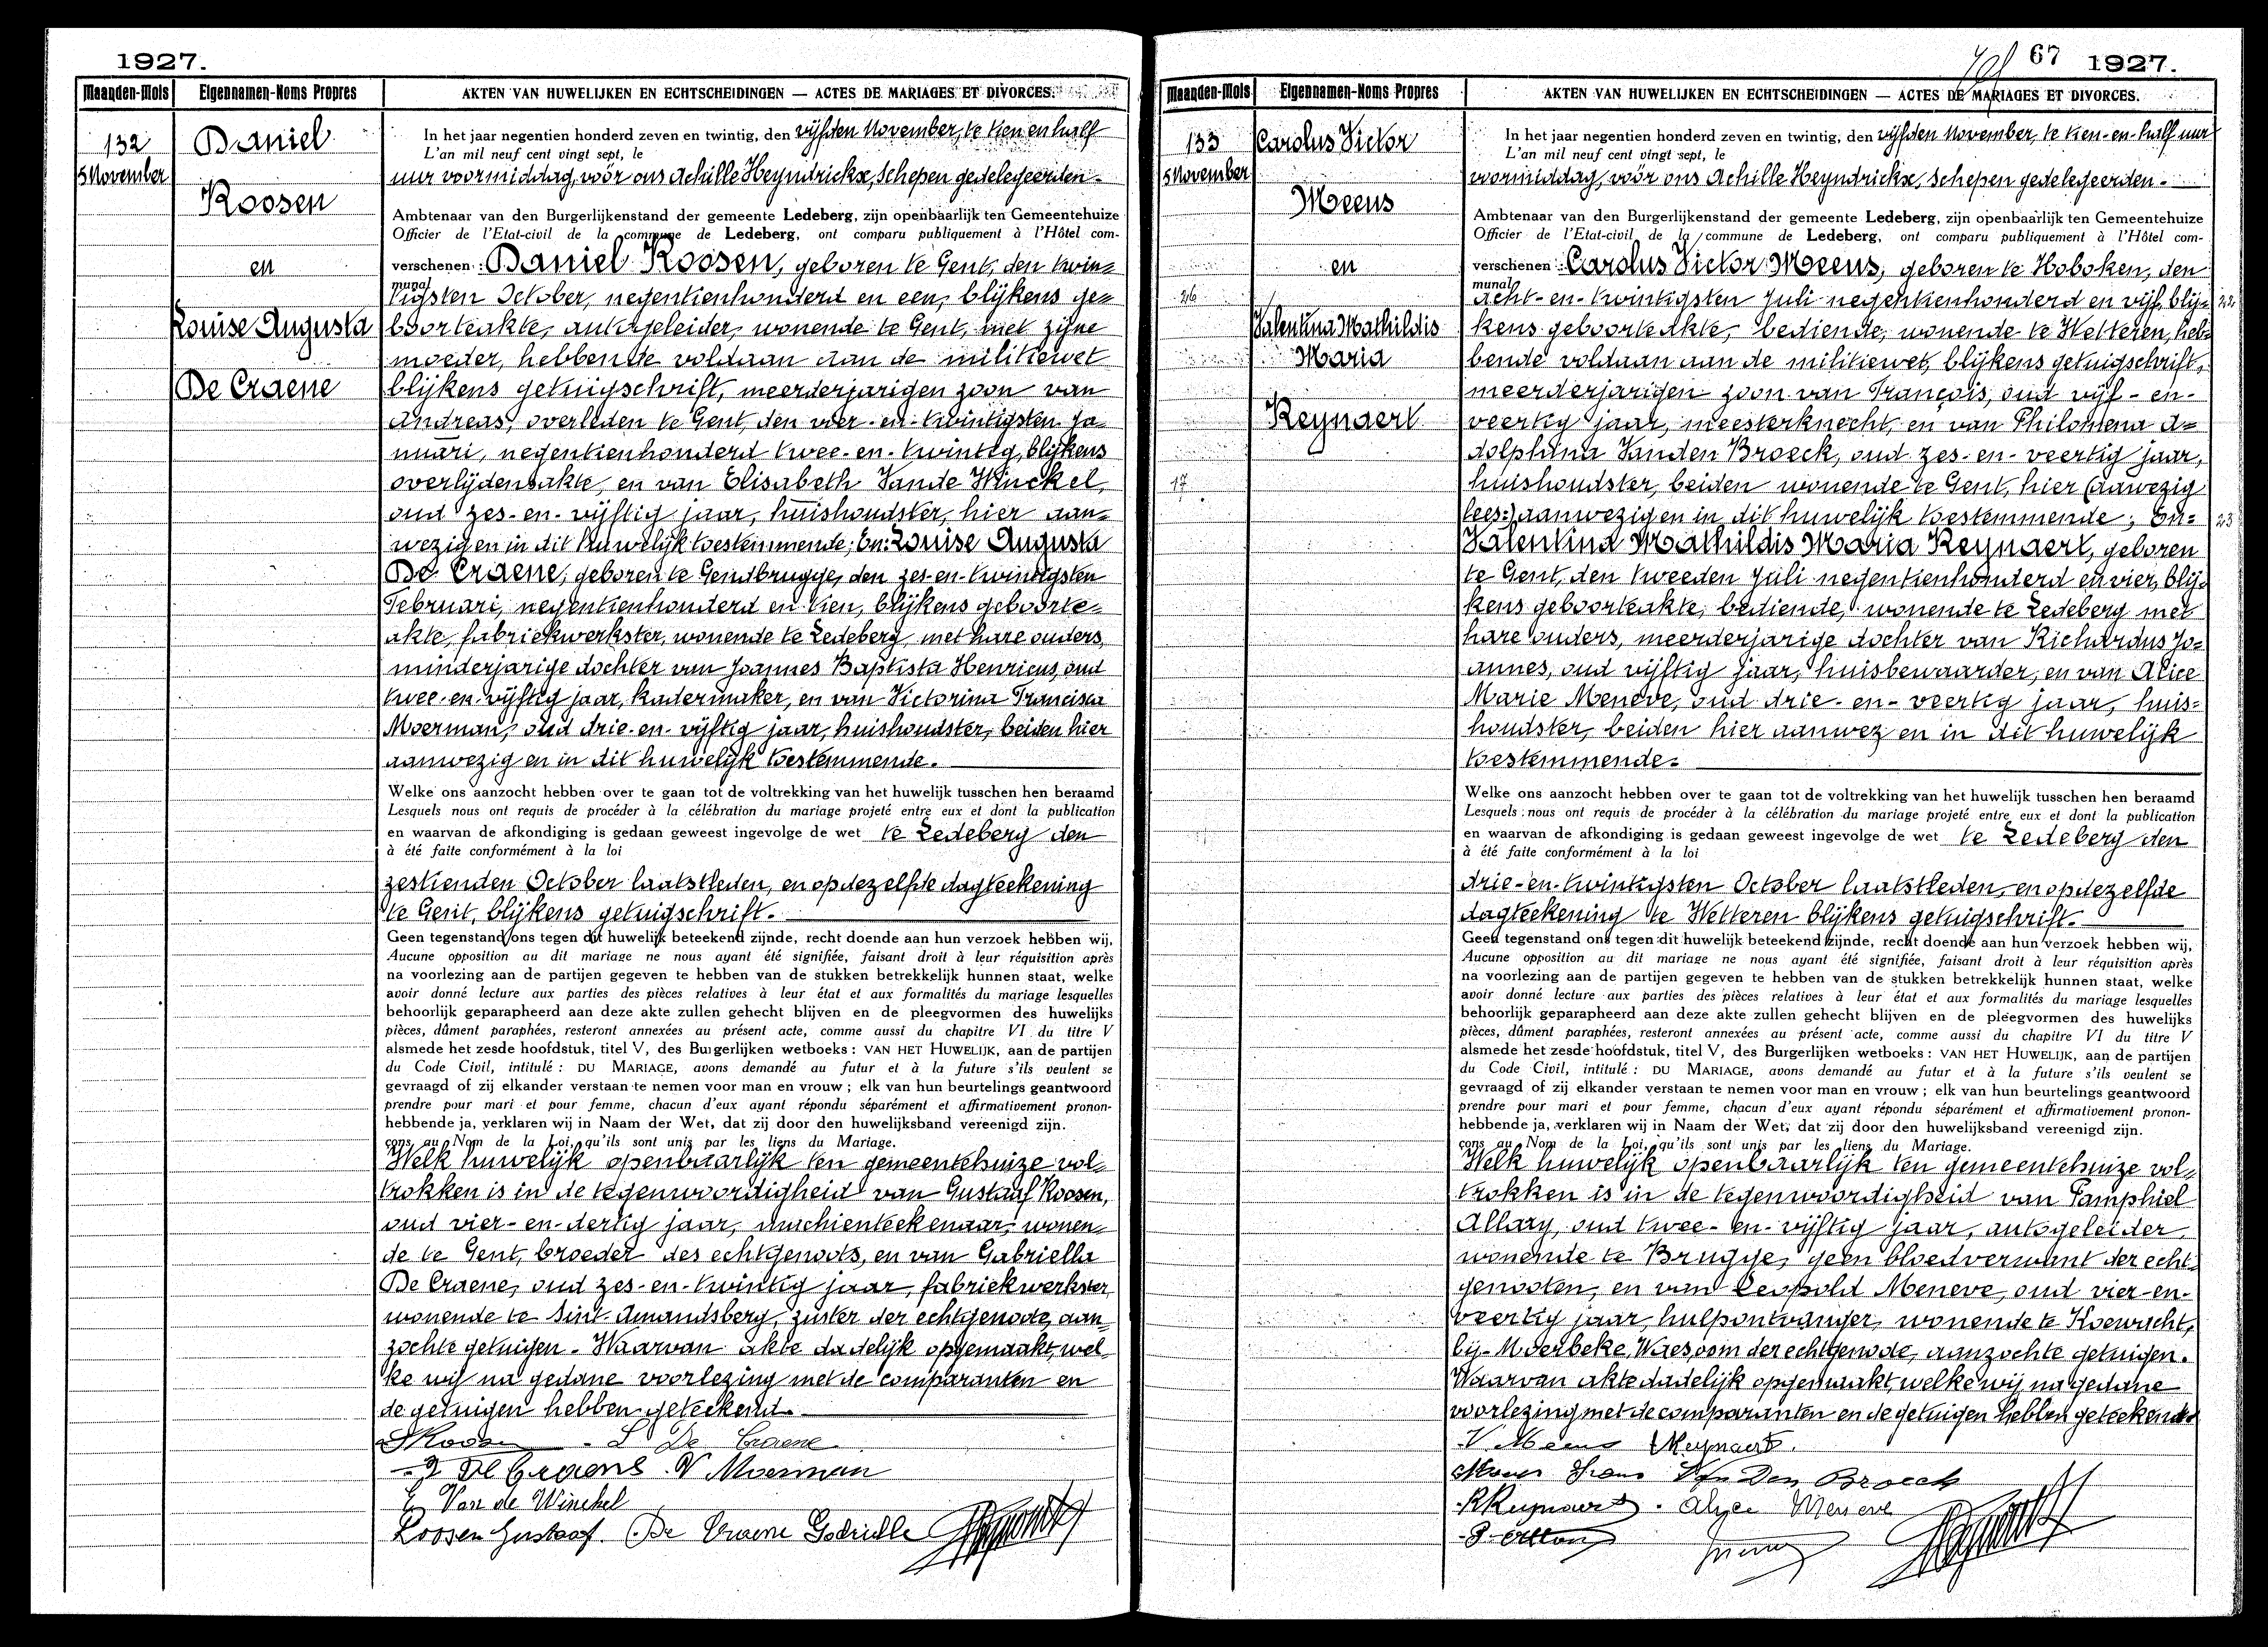 1927.
Maanden-Mois
Eigennamen-Noms Propres
AKTEN VAN HUWELIJKEN EN ECHTSCHEIDINGEN — ACTES DE MARIAGES ET DIVORCES.
132
5 November
Daniel
Roosen
en
Louise Augusta
De Craene
In het jaar negentien honderd zeven en twintig, den vijfden November, te tien en half
L'an mil neuf cent vingt sept, le
uur voormiddag, vóór ons Achille Heyndrickx, Schepen gedelegeerden-
Ambtenaar van den Burgerlijkenstand der gemeente Ledeberg, zijn openbaarlijk ten Gemeentehuize
Officier de l'Etat-civil de la commune de Ledeberg, ont comparu publiquement à l'Hôtel com-
verschenen : Daniel Roosen, geboren te Gent, den twin=
munal
tigsten October, negentienhonderd en een, blijkens ge=
boorteakte, autogeleider, wonende te Gent, met zijne
moeder, hebbende voldaan aan de militiewet
blijkens getuigschrift, meerderjarigen zoon van
Andreas, overleden te Gent, den vier-en-twintigsten Ja=
nuari, negentienhonderd twee-en-twintig, blijkens
overlijdensakte, en van Elisabeth Vande Winckel,
oud zes-en-vijftig jaar, huishoudster, hier aan=
wezig en in dit huwelijk toestemmende; En: Louise Augusta
De Craene, geboren te Gendbrugge, den zes-en-twintigsten
Februari, negentienhonderd en tien, blijkens geboorte=
akte, fabriekwerkster, wonende te Ledeberg met hare ouders,
minderjarige dochter van Joannes Baptista Henricus, oud
twee-en-vijftig jaar, kadermaker, en van Victorina Francisca
Moerman, oud drie-en-vijftig jaar, huishoudster, beiden hier
aanwezig en in dit huwelijk toestemmende.
Welke ons aanzocht hebben over te gaan tot de voltrekking van het huwelijk tusschen hen beraamd
Lesquels nous ont requis de procéder à la célébration du mariage projeté entre eux et dont la publication
en waarvan de afkondiging is gedaan geweest ingevolge de wet te Ledeberg den
à été faite conformément à la loi
zestienden October laatstleden, en op dezelfde dagteekening
te Gent, blijkens getuigschrift.
Geen tegenstand ons tegen dit huwelijk beteekend zijnde, recht doende aan hun verzoek hebben wij,
Aucune opposition au dit mariage ne nous ayant été signifiée, faisant droit à leur réquisition après
na voorlezing aan de partijen gegeven te hebben van de stukken betrekkelijk hunnen staat, welke
avoir donné lecture aux parties des pièces relatives à leur état et aux formalités du mariage lesquelles
behoorlijk geparapheerd aan deze akte zullen gehecht blijven en de pleegvormen des huwelijks
pièces, dûment paraphées, resteront annexées au présent acte, comme aussi du chapitre VI du titre V
alsmede het zesde hoofdstuk, titel V, des Burgerlijken wetboeks : VAN HET HUWELIJK, aan de partijen
du Code Civil, intitulé : DU MARIAGE, avons demandé au futur et à la future s'ils veulent se
gevraagd of zij elkander verstaan te nemen voor man en vrouw ; elk van hun beurtelings geantwoord
prendre pour mari et pour femme, chacun d'eux ayant répondu séparément et affirmativement pronon-
hebbende ja, verklaren wij in Naam der Wet, dat zij door den huwelijksband vereenigd zijn.
çons au Nom de la Loi, qu'ils sont unis par les liens du Mariage.
Welk huwelijk openbaarlijk ten gemeentehuize vol=
trokken is in de tegenwoordigheid van Gustaaf Roosen,
oud vier-en-dertig jaar, maschienteekenaar, wonen=
de te Gent, broeder des echtgenoots, en van Gabriella
De Craene, oud zes-en-twintig jaar, fabriekwerkster,
wonende te Sint-Amandsberg, zuster der echtgenoote, aan=
zochte getuigen- Waarvan akte dadelijk opgemaakt, wel=
ke wij na gedane voorlezing met de comparanten en
de getuigen hebben geteekend.
Roosen L De Craene
De Craene V Moerman
E Van de Winckel
Roosen Gustaaf De Craene Gabrielle
67 1927.
Maanden-Mois
Eigennamen-Noms Propres
AKTEN VAN HUWELIJKEN EN ECHTSCHEIDINGEN — ACTES DE MARIAGES ET DIVORCES.
133
5 November
26
17
Carolus Victor
Meeus
en
Valentina Mathildis
Maria
Reynaert
In het jaar negentien honderd zeven en twintig, den vijfden November, te tien-en-half uur
L'an mil neuf cent vingt sept, le
voormiddag, vóór ons Achille Heyndrickx, Schepen gedelegeerden-
Ambtenaar van den Burgerlijkenstand der gemeente Ledeberg, zijn openbaarlijk ten Gemeentehuize
Officier de l'Etat-civil de la commune de Ledeberg, ont comparu publiquement à l'Hôtel com-
verschenen : Carolus Victor Meeus, geboren te Hoboken, den
munal
acht-en-twintigsten Juli negentienhonderd en vijf, blij= 22
kens geboorteakte, bediende, wonende te Wetteren, heb=
bende voldaan aan de militiewet, blijkens getuigschrift,
meerderjarigen zoon van François, oud vijf-en-
veertig jaar, meesterknecht, en van Philomena A=
dolphina Vanden Broeck, oud zes-en-veertig jaar,
huishoudster, beiden wonende te Gent, hier (aawezig
lees:) aanwezig en in dit huwelijk toestemmende; En= 23
Valentina Mathildis Maria Reynaert, geboren
te Gent, den tweeden Juli negentienhonderd en vier, blij=
kens geboorteakte, bediende, wonende te Ledeberg met
hare ouders, meerderjarige dochter van Richardus Jo=
annes, oud vijftig jaar, huisbewaarder, en van Alice
Marie Meneve, oud drie-en-veertig jaar, huis=
houdster, beiden hier aanwez en in dit huwelijk
toestemmende.
Welke ons aanzocht hebben over te gaan tot de voltrekking van het huwelijk tusschen hen beraamd
Lesquels nous ont requis de procéder à la célébration du mariage projeté entre eux et dont la publication
en waarvan de afkondiging is gedaan geweest ingevolge de wet te Ledeberg den
à été faite conformément à la loi
drie-en-twintigsten October laatstleden, en op dezelfde
dagteekening te Wetteren blijkens getuigschrift.
Geen tegenstand ons tegen dit huwelijk beteekend zijnde, recht doende aan hun verzoek hebben wij,
Aucune opposition au dit mariage ne nous ayant été signifiée, faisant droit à leur réquisition après
na voorlezing aan de partijen gegeven te hebben van de stukken betrekkelijk hunnen staat, welke
avoir donné lecture aux parties des pièces relatives à leur état et aux formalités du mariage lesquelles
behoorlijk geparapheerd aan deze akte zullen gehecht blijven en de pleegvormen des huwelijks
pièces, dûment paraphées, resteront annexées au présent acte, comme aussi du chapitre VI du titre V
alsmede het zesde hoofdstuk, titel V, des Burgerlijken wetboeks : VAN HET HUWELIJK, aan de partijen
du Code Civil, intitulé : DU MARIAGE, avons demandé au futur et à la future s'ils veulent se
gevraagd of zij elkander verstaan te nemen voor man en vrouw ; elk van hun beurtelings geantwoord
prendre pour mari et pour femme, chacun d'eux ayant répondu séparément et affirmativement pronon-
hebbende ja, verklaren wij in Naam der Wet, dat zij door den huwelijksband vereenigd zijn.
çons au Nom de la Loi, qu'ils sont unis par les liens du Mariage.
Welk huwelijk openbaarlijk ten gemeentehuize vol=
trokken is in de tegenwoordigheid van Pamphiel
Allary, oud twee-en-vijftig jaar, autogeleider,
wonende te Brugge, geen bloedverwant der echt=
genooten, en van Leopold Meneve, oud vier-en-
veertig jaar, hulpontvanger, wonende te Koewacht,
bij-Moerbeke, Waes, oom der echtgenoote, aanzochte getuigen.
Waarvan akte dadelijk opgemaakt, welke wij na gedane
voorlezing met de comparanten en de getuigen hebben geteekend
V Meeus Reynaert.
Meeus Frans Van Den Broeck
R Reynaert. Alice Meneve